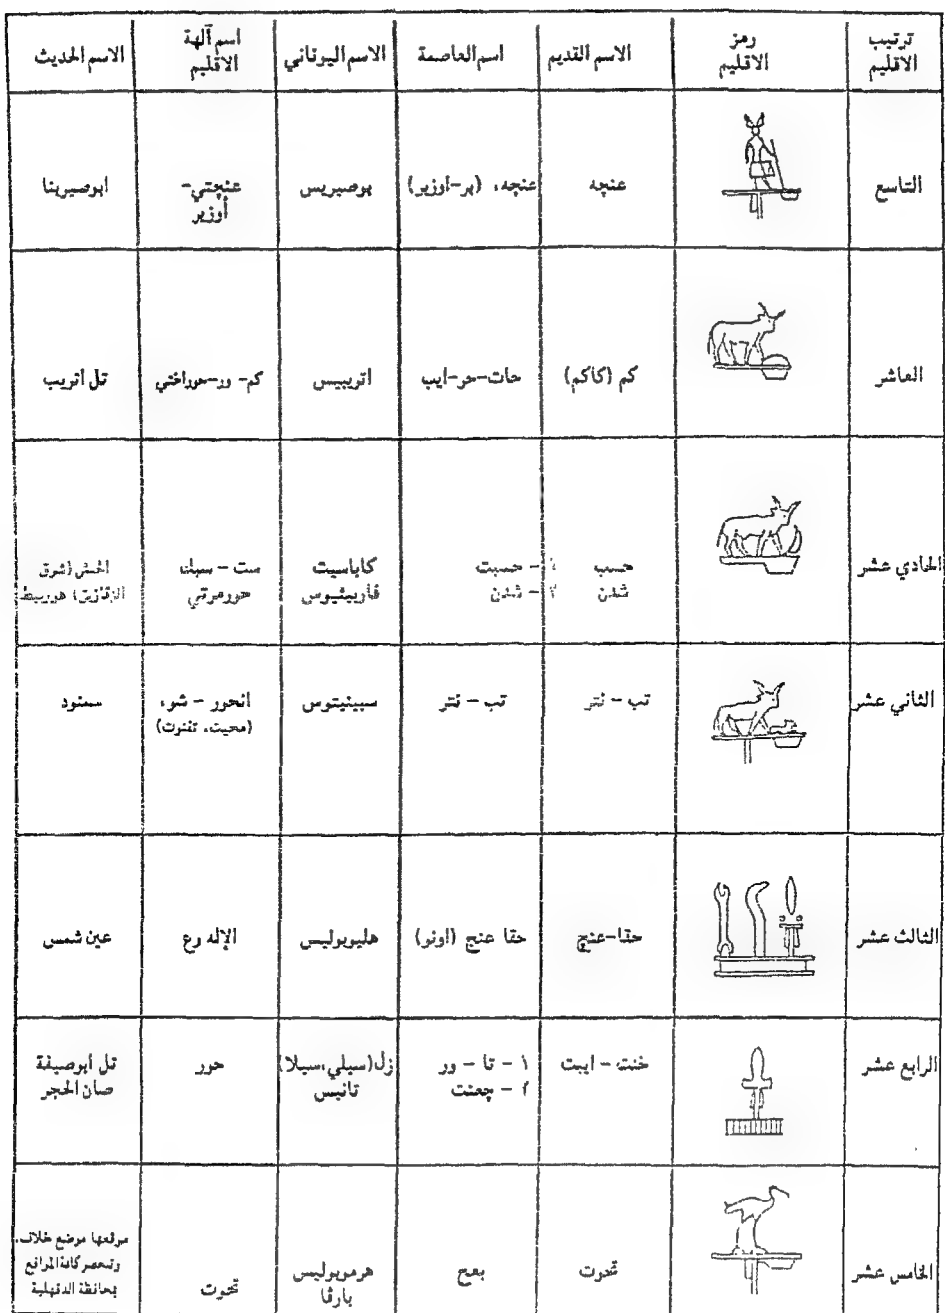 ترتيب الاقليم | رمز الاقليم | الاسم القديم | اسم العاصمة | الاسم اليوناني | اسم آلهة الاقليم | الاسم الحديث
التاسع | عنچه | عنچه، (بر-اوزير) | بوصيريس | عنچتي- أوزير | ابوصيربنا
العاشر | كم (كاكم) | حات-حر-ايب | اتريبيس | كم- ور-حوراختي | تل اتريب
الحادي عشر | حسب شدن | ١ - حسبت ٢ - شدن | كاباسيت فاربيثيوس | ست - سبك حورمرتي | (شرق الزقازيق) هوربيط
الثاني عشر | تب - نتر | تب - نتر | سبينيتوس | انحور - شو، (محيت، تفنوت) | سمنود
الثالث عشر | حقا-عنچ | حقا عنج (اونو) | هليوبوليس | الإله رع | عين شمس
الرابع عشر | خنت - ايبت | ١ - تا - ور ٢ - چعنت | زل(سيلي،سيلا) تانيس | حور | تل ابوصيفة صان الحجر
الخامس عشر | تحوت | بعح | هرموبوليس بارفا | تحوت | موقعها موضع خلاف، وتنحصر كافة المواقع بمحافظة الدقهلية